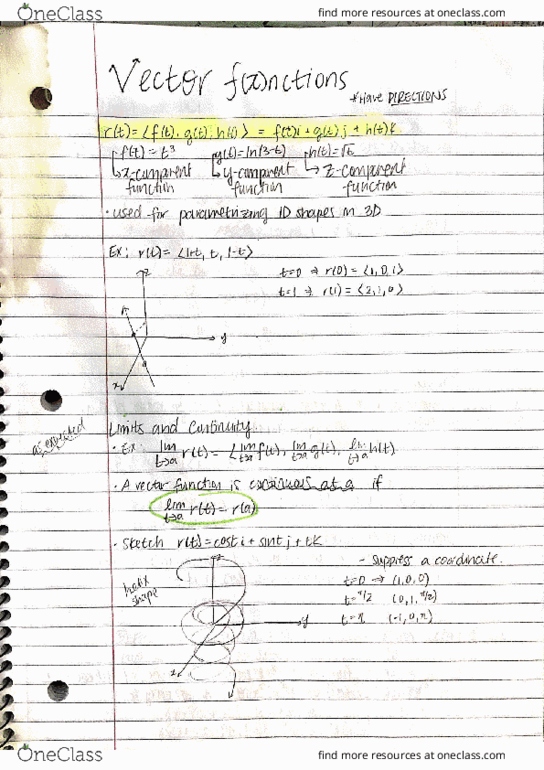 OneClass
find more resources at oneclass.com
Vector f(x)nctions
*Have DIRECTIONS
r(t) = ⟨f(t), g(t), h(t)⟩ = f(t)i + g(t)j + h(t)k
f(t) = t³ g(t) = ln(3-t) h(t) = √t
↳ x-component function
↳ y-component function
↳ z-component function
• used for parametrizing 1D shapes in 3D
Ex: r(t) = ⟨1+t, t, 1-t⟩
z
t=0 ⇒ r(0) = ⟨1, 0, 1⟩
t=1 ⇒ r(1) = ⟨2, 1, 0⟩
y
x
Limits and Continuity
as expected
• Ex: lim t→a r(t) = ⟨lim t→a f(t), lim t→a g(t), lim t→a h(t)
• A vector function is continuous at a if
lim t→a r(t) = r(a)
• sketch r(t) = cost i + sint j + tk
z
- suppress a coordinate.
helix shape
t=0 → (1, 0, 0)
t=π/2 (0, 1, π/2)
t=π (-1, 0, π)
y
x
OneClass
find more resources at oneclass.com